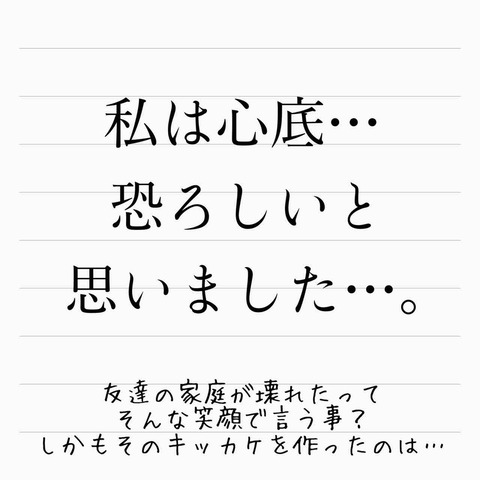 私は心底…
恐ろしいと
思いました…。
友達の家庭が壊れたって
そんな笑顔で言う事？
しかもそのキッカケを作ったのは…